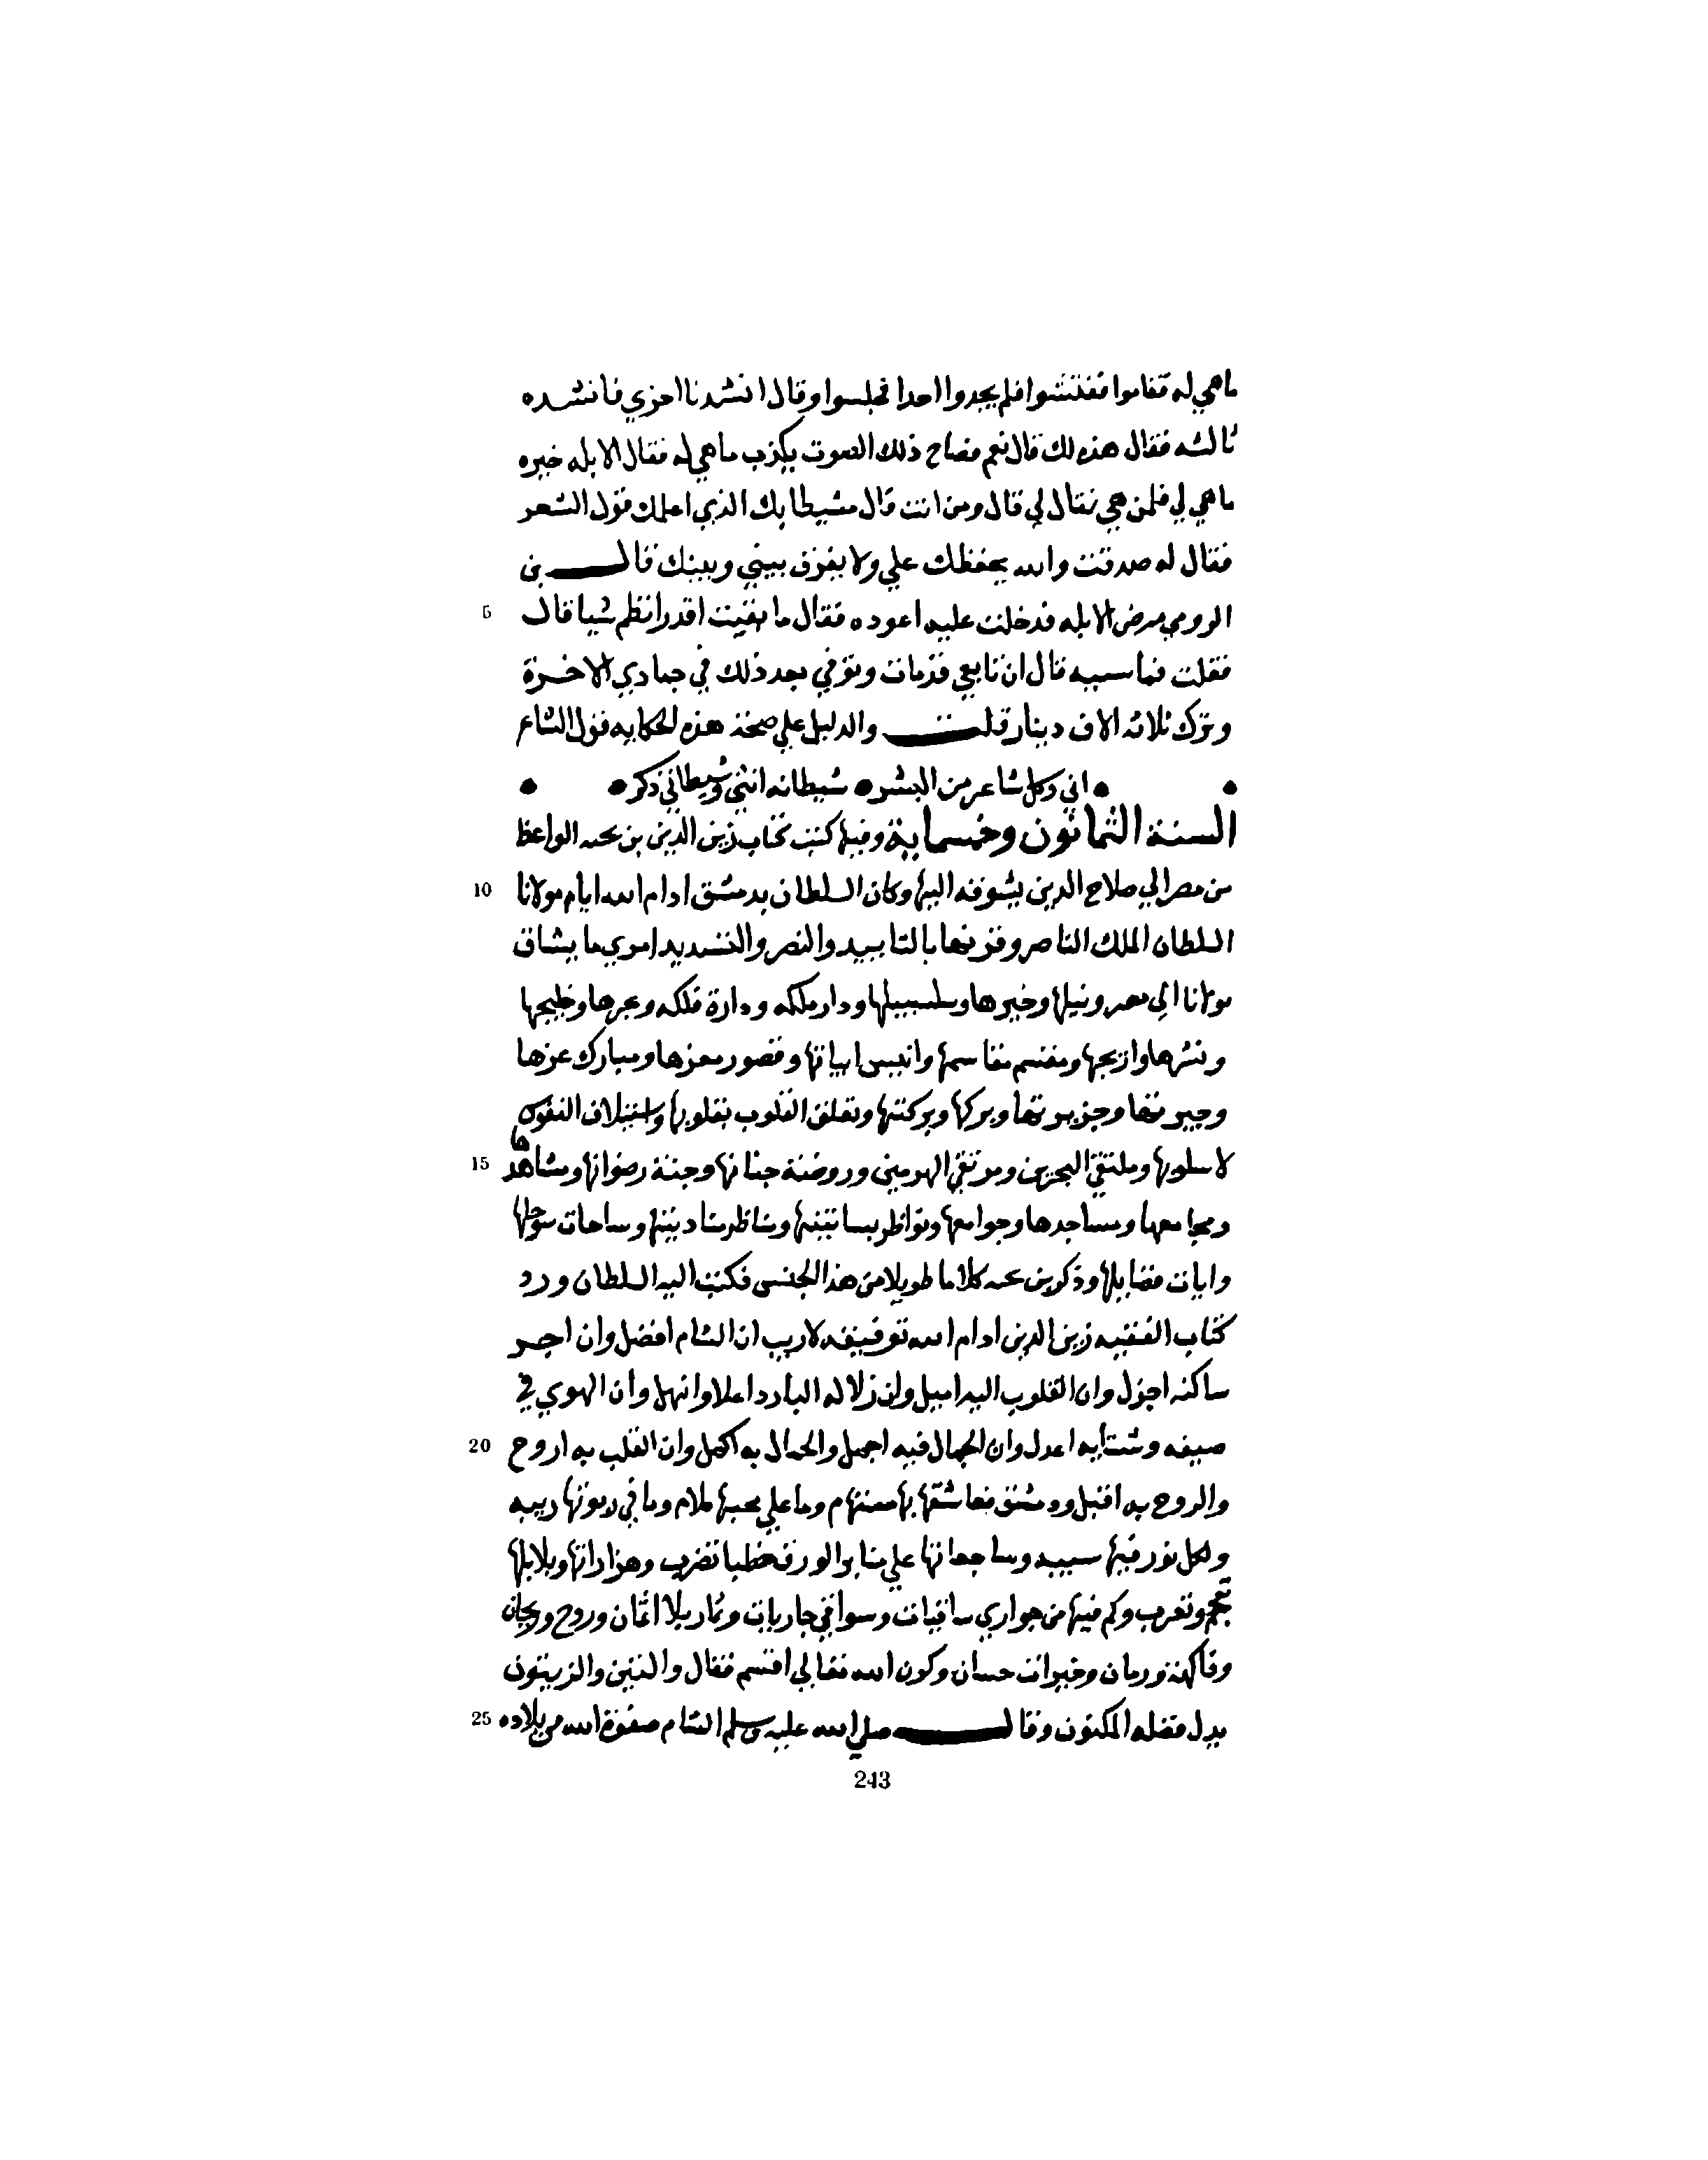 ماهي له فقاموا ففتشوا فلم يجدوا احدا فجلسوا وقال انشدنا اخري فانشده
ثالثه فقال هذه لك قال نعم فصاح ذلك الصوت يكذب ماهي له فقال الابله خبره
ماهي لي فلمن هي فقال لي قال ومن انت قال شيطانك الذي اعلمك قول الشعر
فقال له صدقت والله يحفظك علي ولا يفرق بيني وبينك قال بن
5 الرومي مرض الابله فدخلت عليه اعوده فقال ما بقيت اقدر انظم شيا قال
فقلت فما سببه قال ان تابعي قد مات وتوفي بعد ذلك في جمادي الاخرة
وترك ثلاثه الاف دينار قلت والدليل علي صحة هذه الحكايه قول الشاعر
اني وكل شاعر من البشر شيطانه انثي وشيطاني ذكر
السنة الثمانون وخمسماية وفيها كتب كتاب زين الدين بن نجيه الواعظ
10 من مصر الي صلاح الدين يشوقه اليها وكان السلطان بدمشق ادام الله ايام مولانا
السلطان الملك الناصر وقرنها بالتاييد والنصر والتسديد اما يشتاق
مولانا الي مصر ونيلها وخيرها وسلسبيلها ودار ملكه ودارة فلكه وبحرها وخليجها
ونشرها واريجها ومقسم مقاسمها وانيس اياتها وقصور معزها ومبارك عزها
وجيزتها وجزيرتها وبركها وبركتها وتعلق القلوب بقلوبها واستيلاف النفوس
15 لاسلوبها وملتقي البحرين ومرتقي الهرمين وروضة جنانها وجنة رضوانها ومشاهدها
ومجامعها ومساجدها وجوامعها ونواظر بساتينها ومناظر ميادينها وساحات سواحلها
وايات فضايلها وذكر بن نجيه كلاما طويلا من هذا الجنس فكتب اليه السلطان ورد
كتاب الفقيه زين الدين ادام الله توفيقه لاريب ان الشام افضل وان اجر
ساكنه اجزل وان القلوب اليه اميل وان زلاله البارد اعلا وانهل وان الهوي في
20 صيفه وشتايه اعدل وان الجمال فيه اجمل والكمال به اكمل وان القلب به اروح
والروح به اقبل ودمشق فعاشقها بها مستهام وما علي محبها ملام وما في ربوتها ريبه
ولكل نور فيها سبيبه وساجعاتها علي منابر الورق خطبا تضرب وهزاراتها وبلابلها
تعجم وتعرب وكم فيها من جواري ساقيات وسواقي جاريات وثمار بلا اثمان وروح وريحان
وفاكهة ورمان وخيرات حسان وكون الله تعالي اقسم فقال والتين والزيتون
25 يدل فضله المكنون وقال صلي الله عليه وسلم الشام صفوة الله من بلاده
243